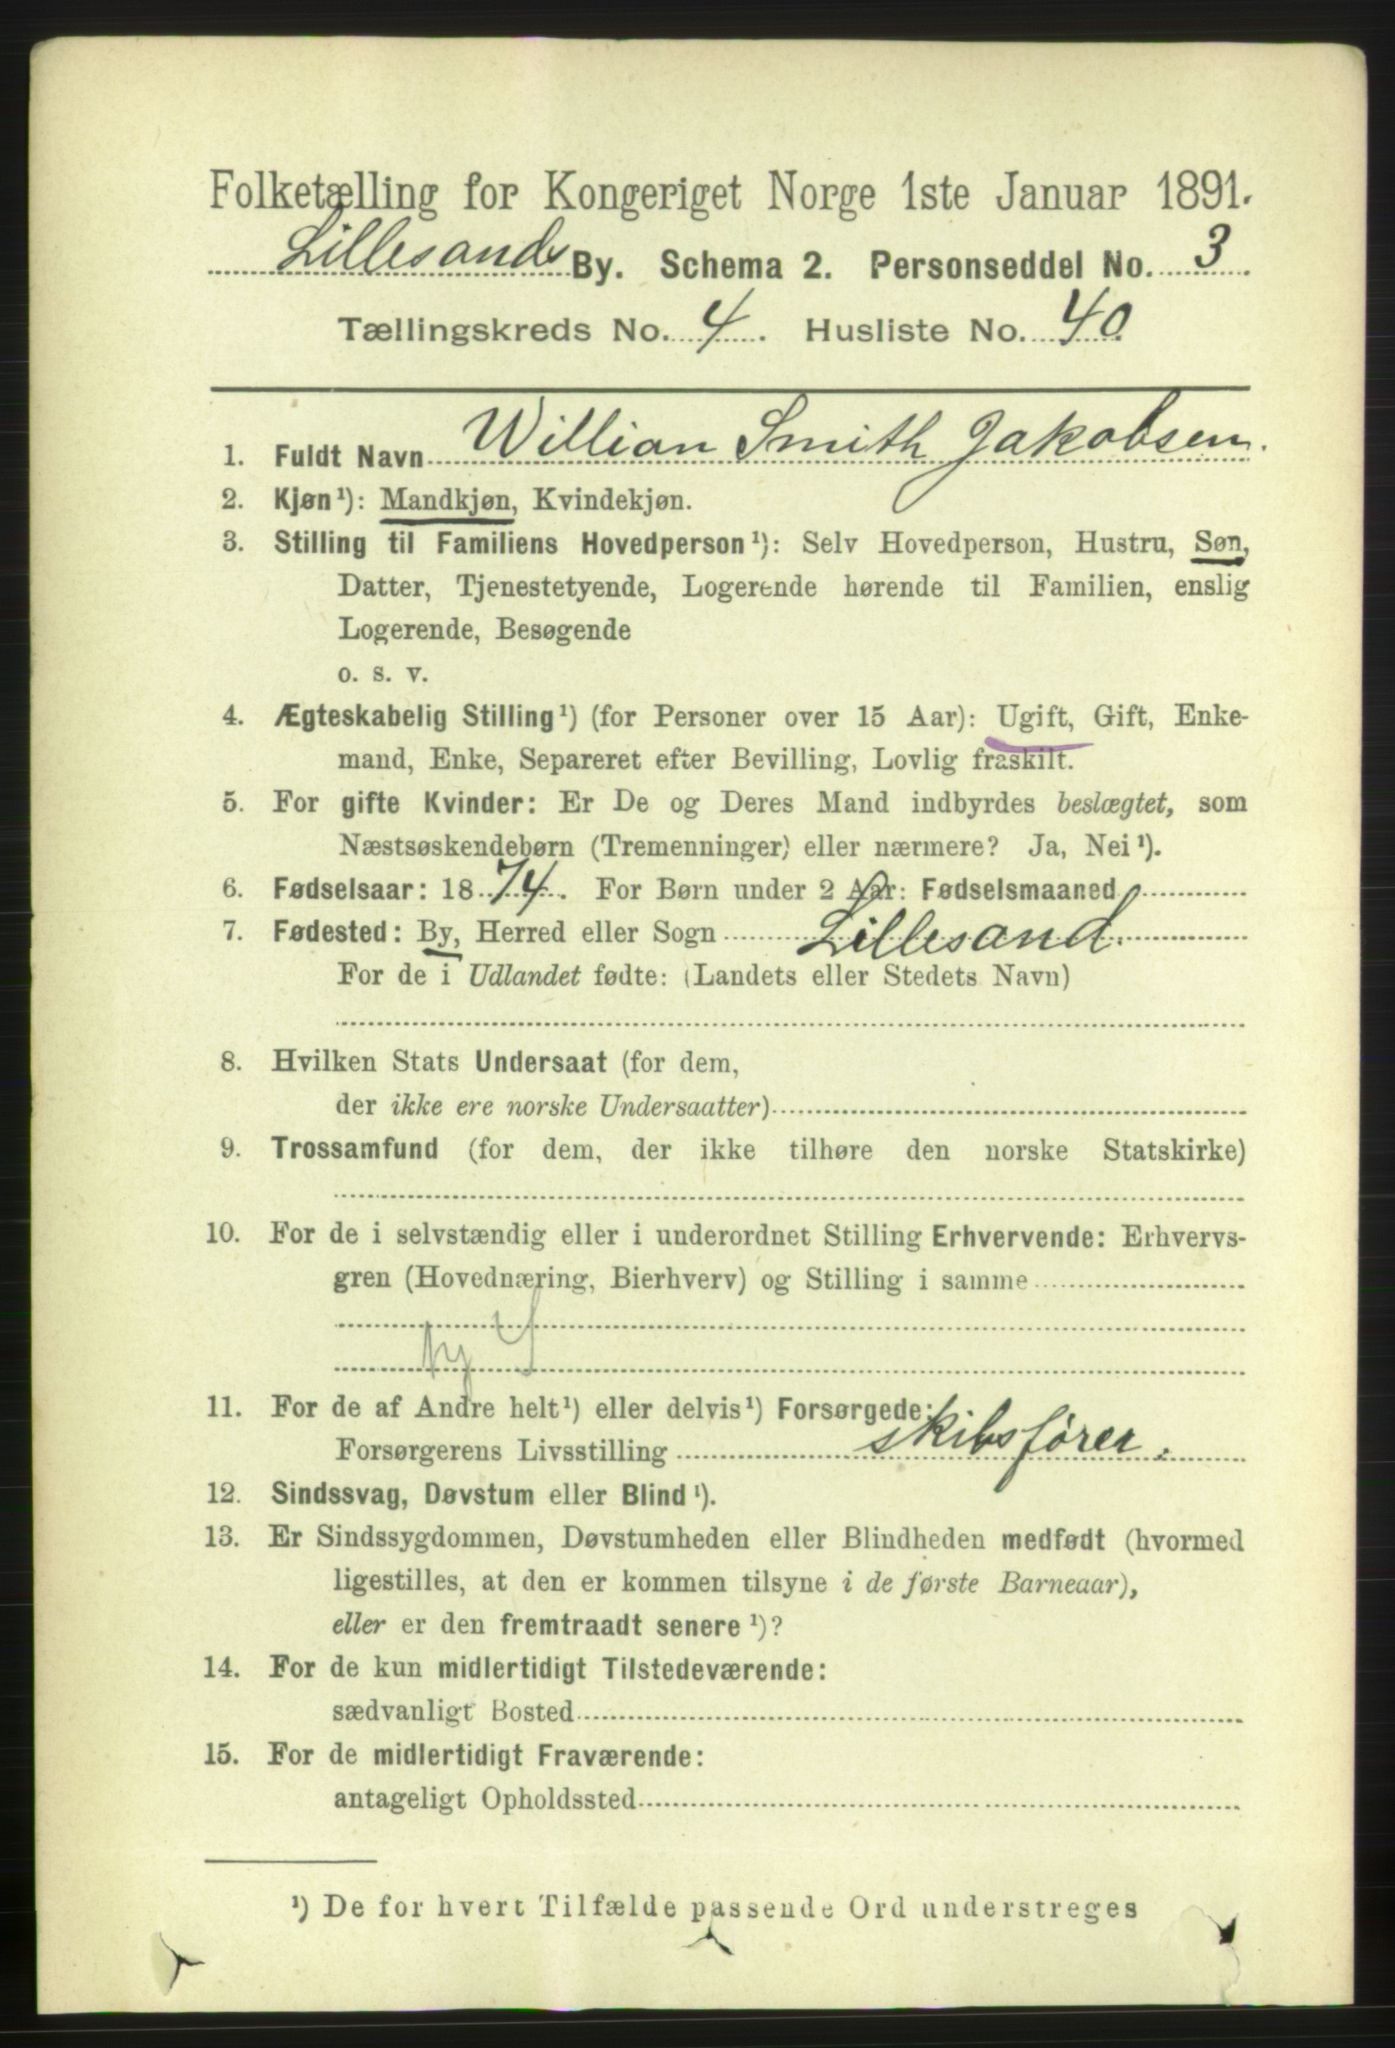 Folketælling for Kongeriget Norge 1ste Januar 1891.
Lillesands By. Schema 2. Personseddel No. 3
Tællingskreds No. 4. Husliste No. 40.
1. Fuldt Navn Willian Smith Jakobsen.
2. Kjøn¹): Mandkjøn, Kvindekjøn.
3. Stilling til Familiens Hovedperson¹): Selv Hovedperson, Hustru, Søn,
Datter, Tjenestetyende, Logerende hørende til Familien, enslig
Logerende, Besøgende
o. s. v.
4. Ægteskabelig Stilling¹) (for Personer over 15 Aar): Ugift, Gift, Enke-
mand, Enke, Separeret efter Bevilling, Lovlig fraskilt.
5. For gifte Kvinder: Er De og Deres Mand indbyrdes beslægtet, som
Næstsøskendebørn (Tremenninger) eller nærmere? Ja, Nei¹).
6. Fødselsaar: 1874. For Børn under 2 Aar: Fødselsmaaned
7. Fødested: By, Herred eller Sogn Lillesand.
For de i Udlandet fødte: (Landets eller Stedets Navn)
8. Hvilken Stats Undersaat (for dem,
der ikke ere norske Undersaatter)
9. Trossamfund (for dem, der ikke tilhøre den norske Statskirke)
10. For de i selvstændig eller i underordnet Stilling Erhvervende: Erhvervs-
gren (Hovednæring, Bierhverv) og Stilling i samme
11. For de af Andre helt¹) eller delvis¹) Forsørgede:
Forsørgerens Livsstilling skibsfører.
12. Sindssvag, Døvstum eller Blind¹).
13. Er Sindssygdommen, Døvstumheden eller Blindheden medfødt (hvormed
ligestilles, at den er kommen tilsyne i de første Barneaar),
eller er den fremtraadt senere¹)?
14. For de kun midlertidigt Tilstedeværende:
sædvanligt Bosted
15. For de midlertidigt Fraværende:
antageligt Opholdssted
¹) De for hvert Tilfælde passende Ord understreges